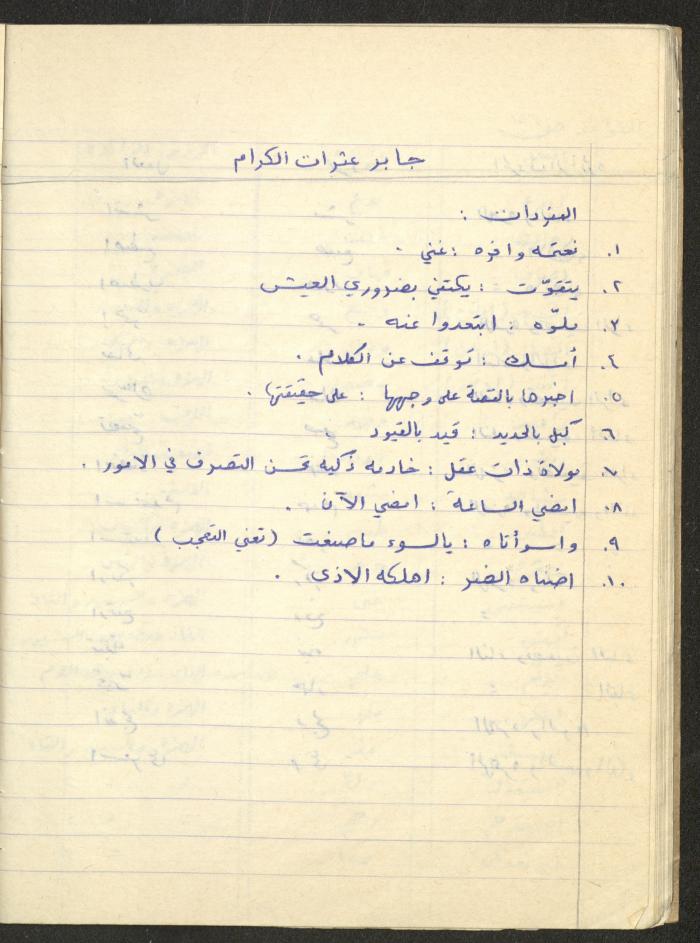 جابر عثرات الكرام
المفردات :
١. نعمته وافره : غني .
٢. يتقوّت : يكتفي بضروري العيش
٣. ملّوه : ابتعدوا عنه .
٤. أمسك : توقف عن الكلام .
٥. اخبروها بالقصة على وجهها : على حقيقتها .
٦. كبل بالحديد : قيد بالقيود
٧. مولاة ذات عقل : خادمه ذكيه تحسن التصرف في الامور .
٨. امضي الساعة : امضي الآن .
٩. واسوأتاه : يالسوء ماصنعت (تعني التعجب)
١٠. اضناه الضر : اهلكه الاذى .